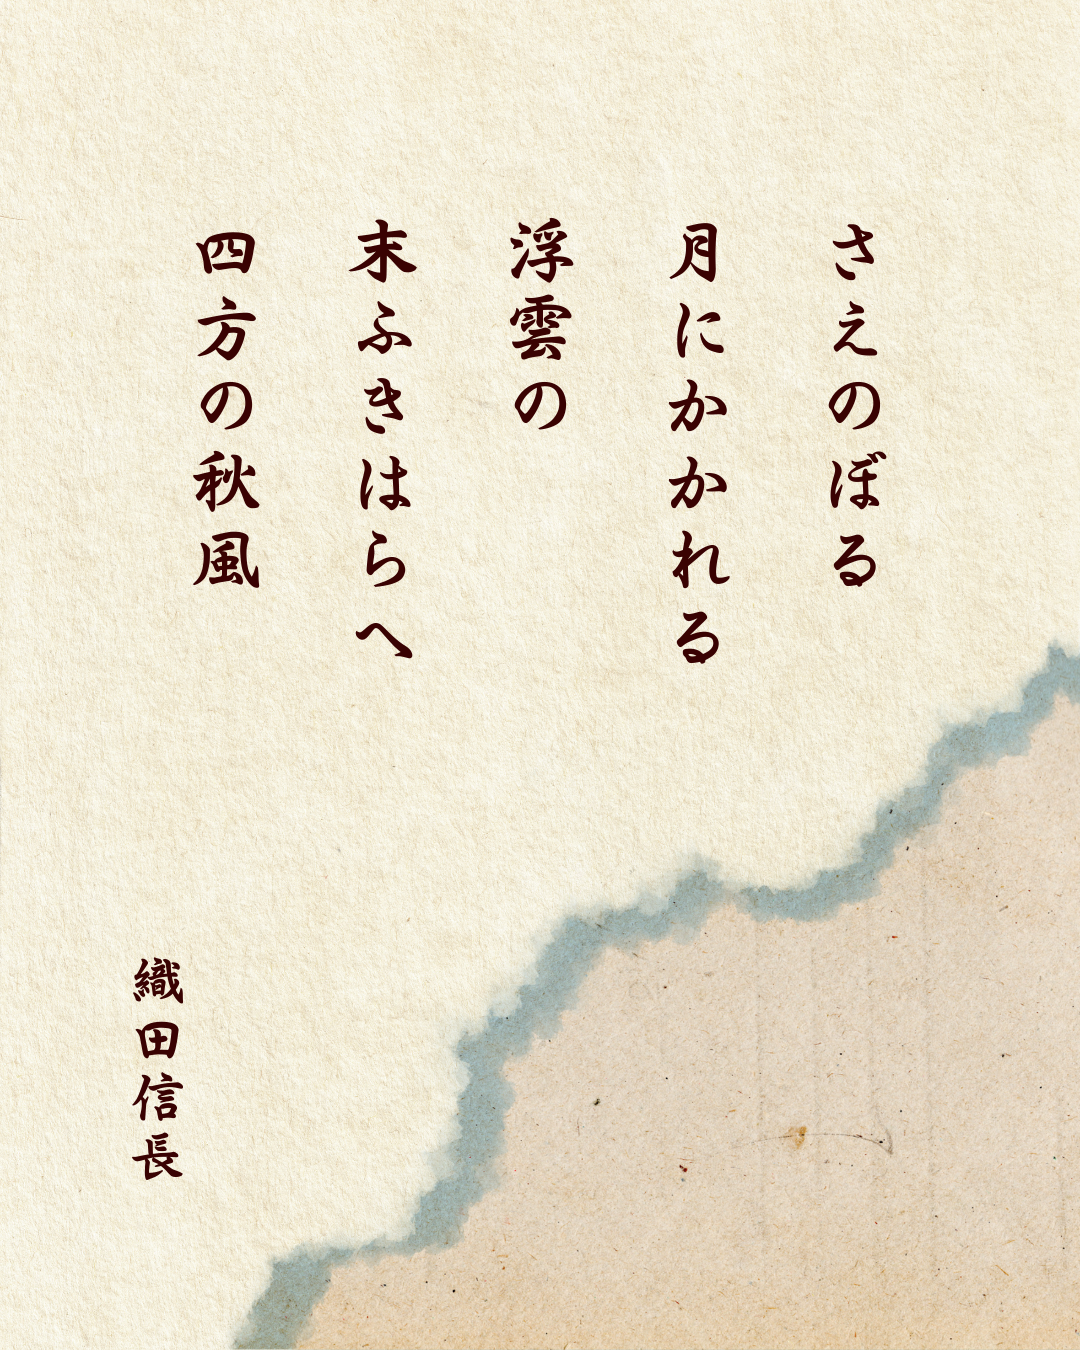 さえのぼる
月にかかれる
浮雲の
末ふきはらへ
四方の秋風
織田信長